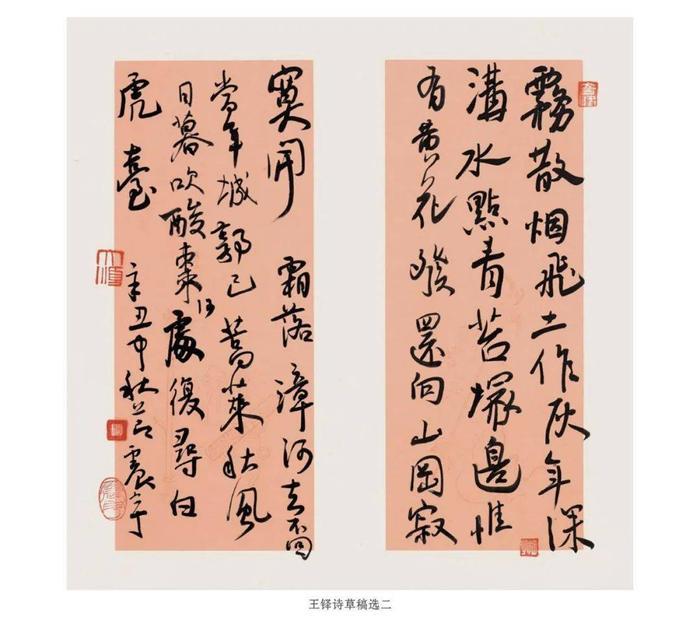 霧散烟飛土作灰年深
溝水點青苔塚邊惟
有黄花發還向山岡寂
寞開 霜落漳河去不回
當年城郭已蒿萊秋風
日暮吹酸棗何處復尋白
虎臺
辛丑中秋節震宇
王铎诗草稿选二